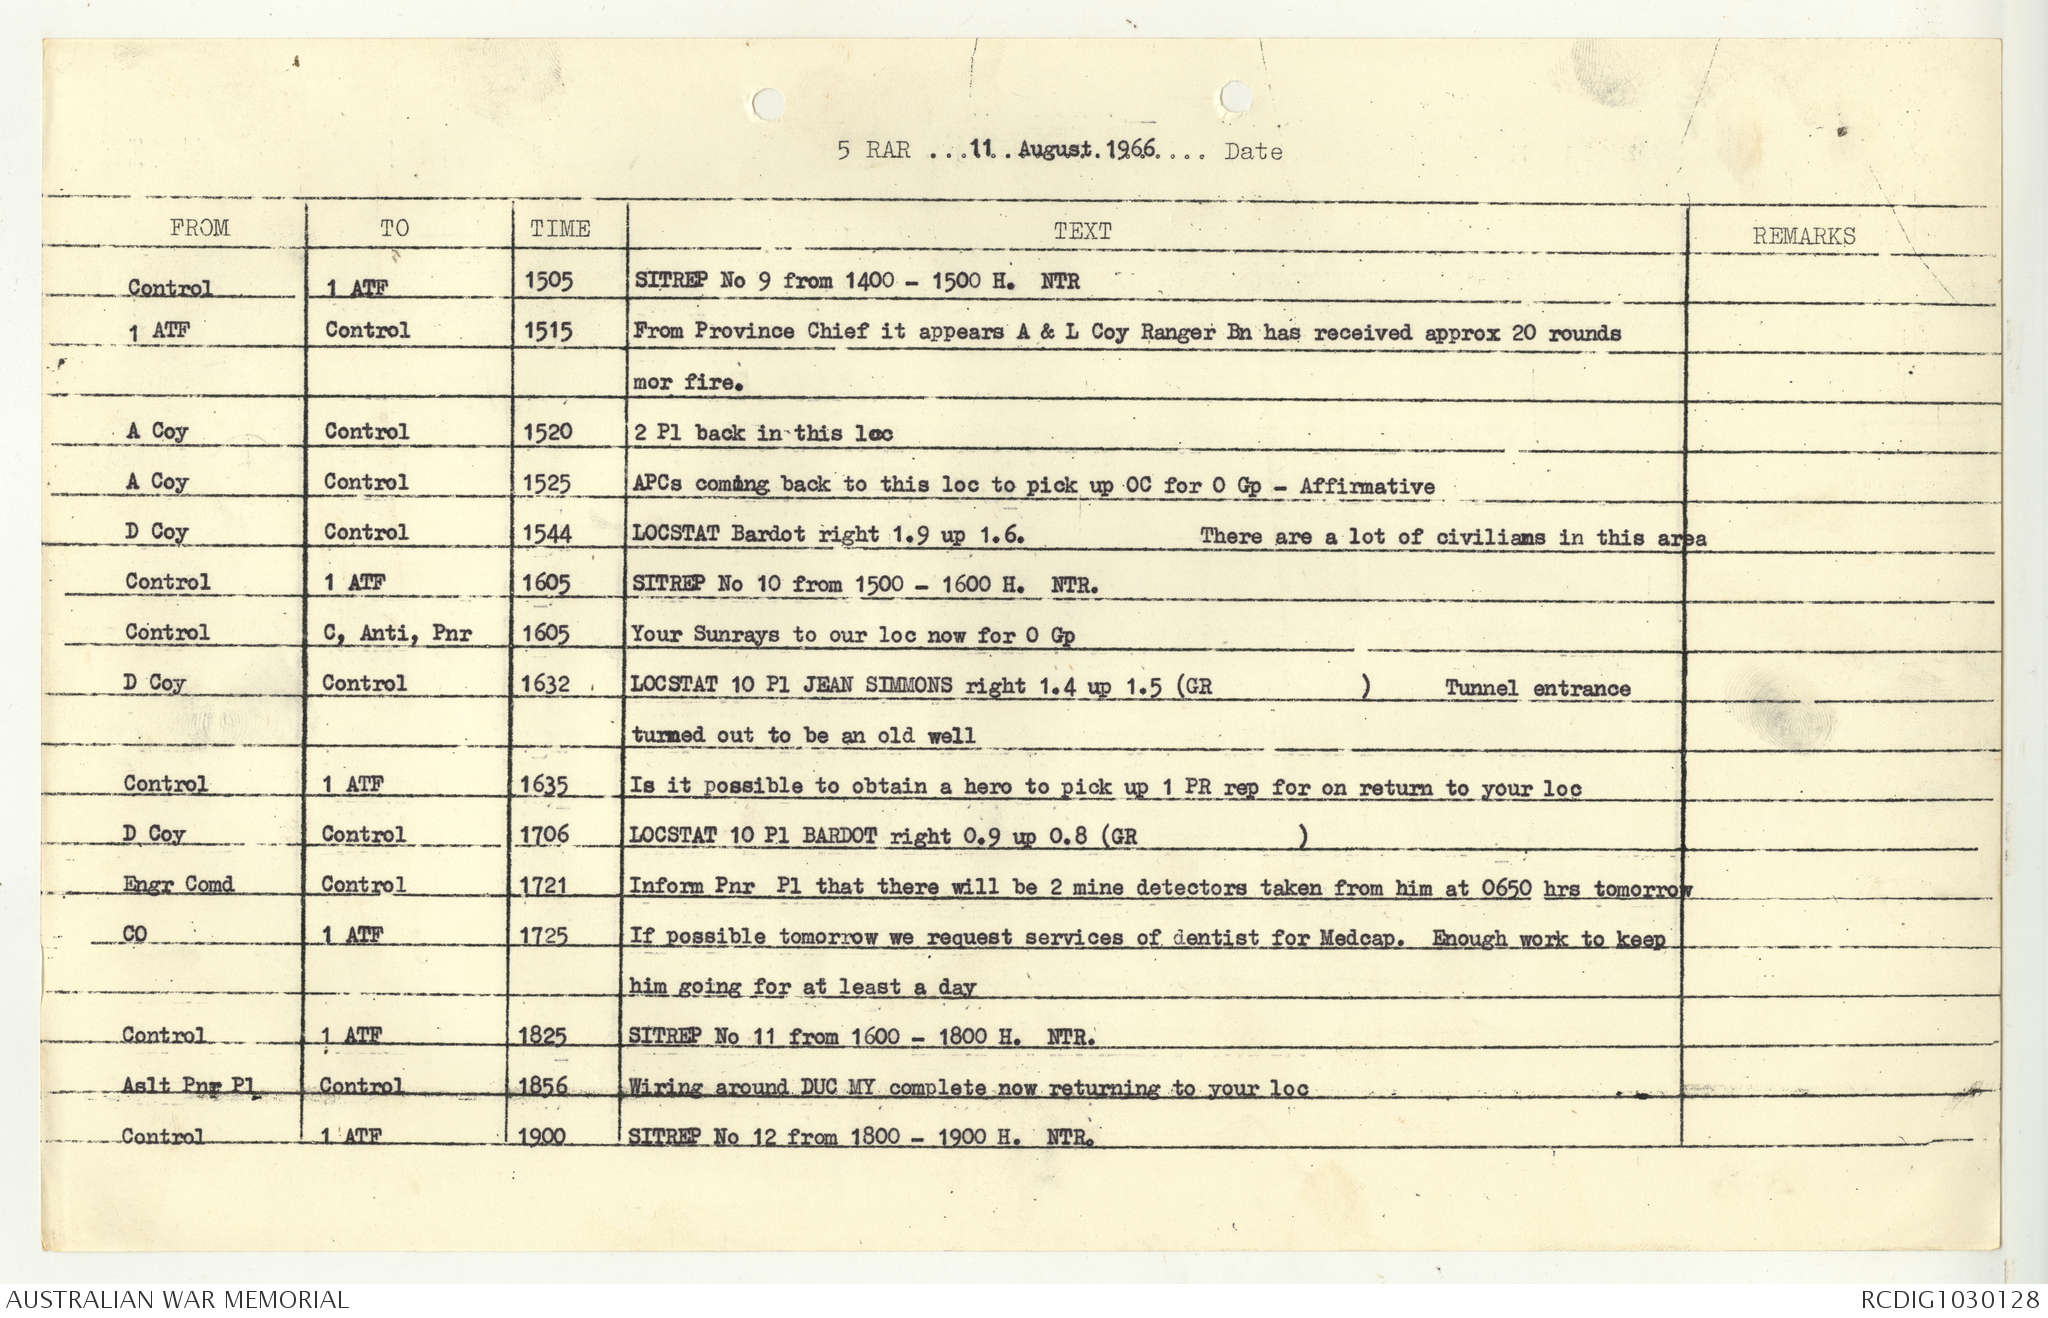 5 RAR ...11..August.1966.... Date
FROM TO TIME TEXT REMARKS
Control 1 ATF 1505 SITREP No 9 from 1400 - 1500 H. NTR
1 ATF Control 1515 From Province Chief it appears A & L Coy Ranger Bn has received approx 20 rounds
mor fire.
A Coy Control 1520 2 Pl back in this loc
A Coy Control 1525 APCs coming back to this loc to pick up OC for O Gp - Affirmative
D Coy Control 1544 LOCSTAT Bardot right 1.9 up 1.6. There are a lot of civilians in this area
Control 1 ATF 1605 SITREP No 10 from 1500 - 1600 H. NTR.
Control C, Anti, Pnr 1605 Your Sunrays to our loc now for O Gp
D Coy Control 1632 LOCSTAT 10 Pl JEAN SIMMONS right 1.4 up 1.5 (GR ) Tunnel entrance
turned out to be an old well
Control 1 ATF 1635 Is it possible to obtain a hero to pick up 1 PR rep for on return to your loc
D Coy Control 1706 LOCSTAT 10 Pl BARDOT right 0.9 up 0.8 (GR )
Engr Comd Control 1721 Inform Pnr Pl that there will be 2 mine detectors taken from him at 0650 hrs tomorrow
CO 1 ATF 1725 If possible tomorrow we request services of dentist for Medcap. Enough work to keep
him going for at least a day
Control 1 ATF 1825 SITREP No 11 from 1600 - 1800 H. NTR.
Aslt Pnr Pl Control 1856 Wiring around DUC MY complete now returning to your loc
Control 1 ATF 1900 SITREP No 12 from 1800 - 1900 H. NTR.
AUSTRALIAN WAR MEMORIAL RCDIG1030128